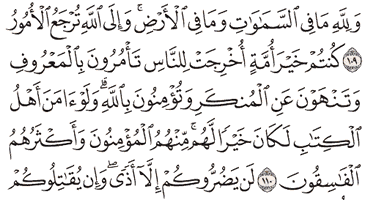 وَلِلَّهِ مَا فِي السَّمَاوَاتِ وَمَا فِي الْأَرْضِ ۚ وَإِلَى اللَّهِ تُرْجَعُ الْأُمُورُ
﴿١٠٩﴾ كُنتُمْ خَيْرَ أُمَّةٍ أُخْرِجَتْ لِلنَّاسِ تَأْمُرُونَ بِالْمَعْرُوفِ
وَتَنْهَوْنَ عَنِ الْمُنكَرِ وَتُؤْمِنُونَ بِاللَّهِ ۗ وَلَوْ ءَامَنَ أَهْلُ
الْكِتَابِ لَكَانَ خَيْرًا لَّهُم ۚ مِّنْهُمُ الْمُؤْمِنُونَ وَأَكْثَرُهُمُ
الْفَاسِقُونَ ﴿١١٠﴾ لَن يَضُرُّوكُمْ إِلَّا أَذًى ۖ وَإِن يُقَاتِلُوكُمْ